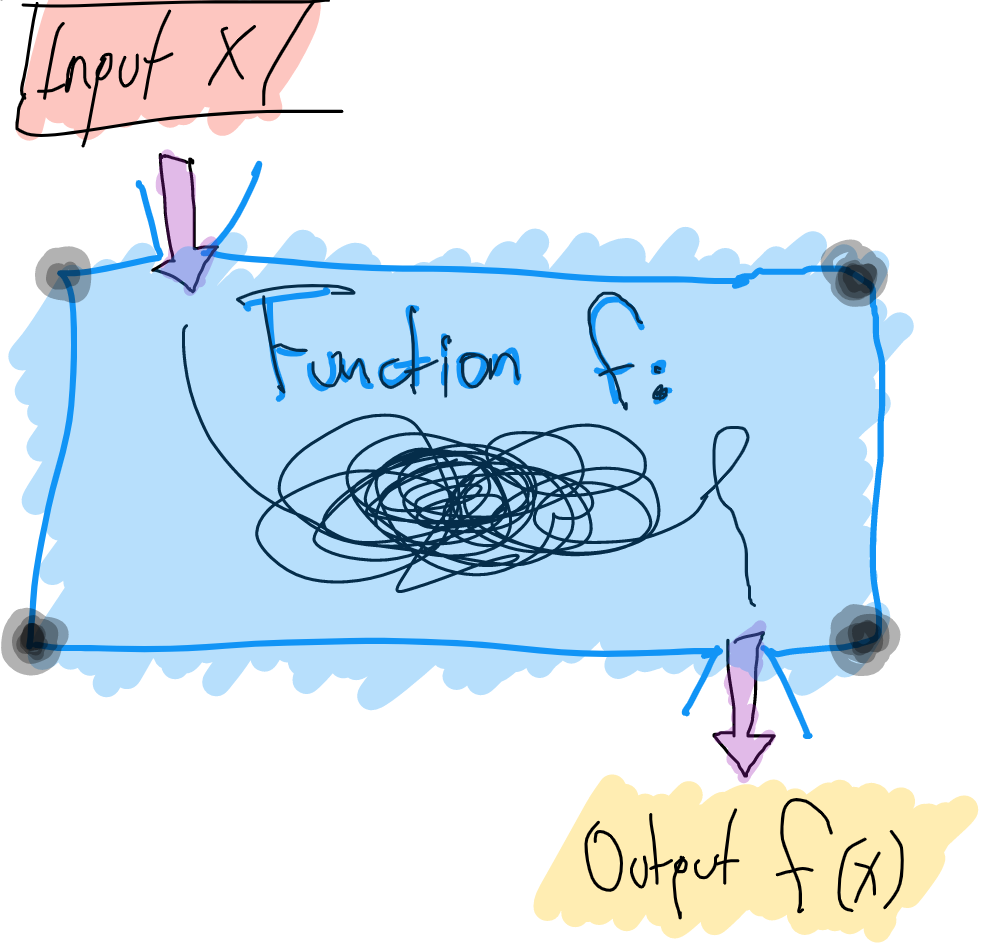 Input X
Function f:
Output f(x)